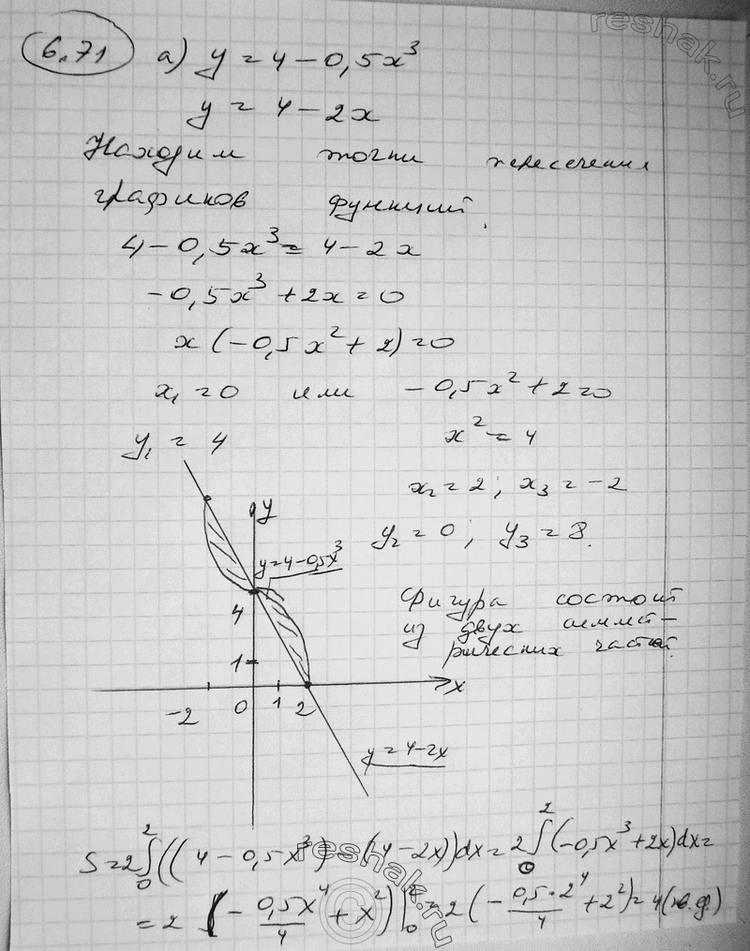 reshak.ru
6.71 а) y = 4 - 0,5x³
y = 4 - 2x
Находим точки пересечения
графиков функций.
4 - 0,5x³ = 4 - 2x
-0,5x³ + 2x = 0
x (-0,5x² + 2) = 0
x₁ = 0 или -0,5x² + 2 = 0
y₁ = 4 x² = 4
x₂ = 2; x₃ = -2
y₂ = 0; y₃ = 8.
y
y = 4 - 0,5x³
4
1
-2 0 1 2 x
y = 4 - 2x
Фигура состоит
из двух симмет-
рических частей.
S = 2∫₀²((4 - 0,5x³) - (4 - 2x))dx = 2∫₀²(-0,5x³ + 2x)dx =
= 2 (-0,5x⁴/4 + x²)|₀² = 2 (-0,5·2⁴/4 + 2²) = 4 (кв.ед.)
reshak.ru